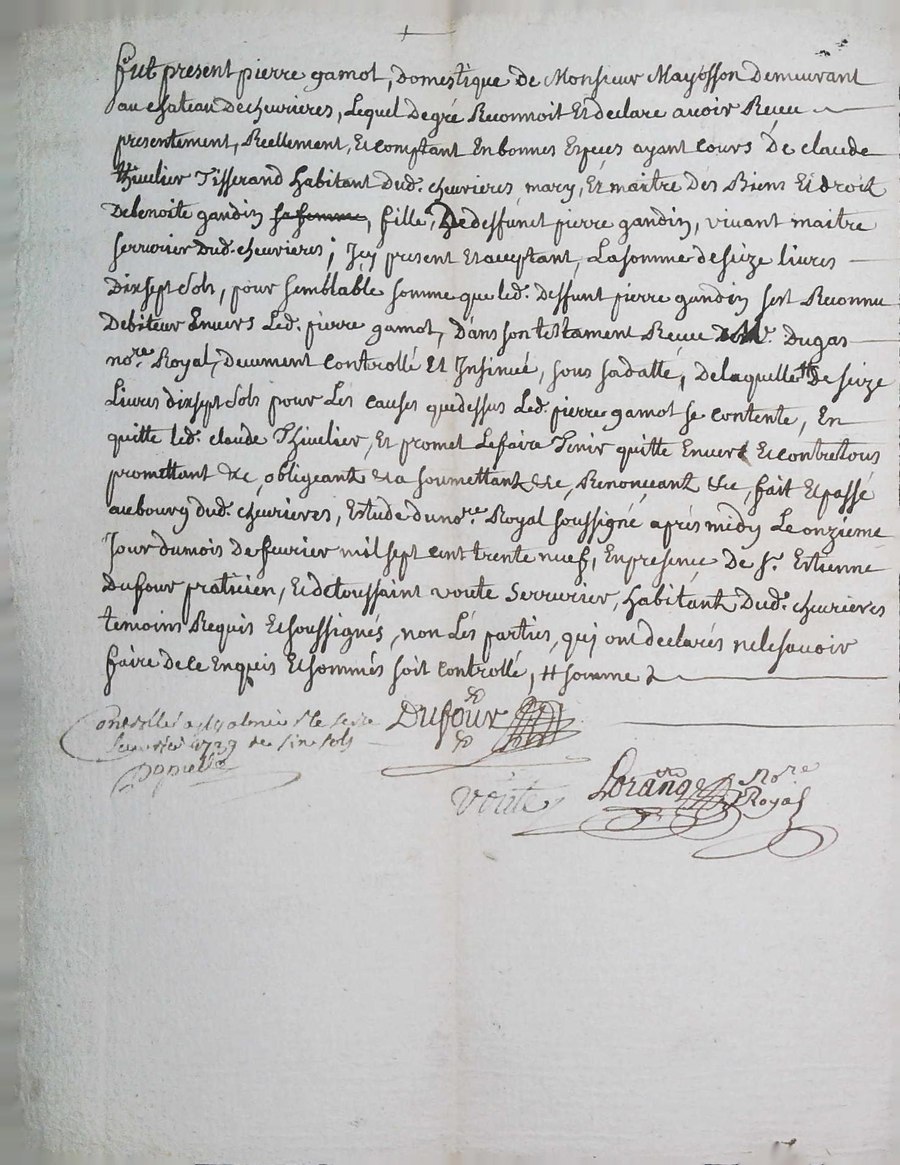 fut present pierre gamot, domestique de Monsieur Mayosson demeurant
au chateau de chevrieres, Lequel de gré Reconnoit Et declare avoir Receu
presentement, Reellement, Et comptant En bonnes Especes ayant cours De claude
thiulier Tisserand habitant dud. chevrieres mary, Et maitre des Biens Et droit
de benoite gandin sa femme, fille, De deffunct pierre gandin, vivant maitre
serrurier dud. chevrieres; Icy present Et acceptant, La somme de seize livres
dix sept sols, pour semblable somme que led. deffunt pierre gandin sest Reconnu
Debiteur Envers Led. pierre gamot, dans son testament Receu Me. Dugas
nore. Royal, deument Controllé Et Insinué, sous sa datte, de laquelle # De seize
Livres dix sept sols pour Les causes que dessus Led. pierre gamot se contente, En
quitte led. claude Thiulier, Et promet Le faire Tenir quitte Envers Et contre tous
promettant &c, obligeant &a soumettant &c, Renonceant &c, fait Et passé
au bourg dud. chevrieres, Estude du nore. Royal soussigné apres midy Le onzieme
Jour du mois de fevrier mil sept cent trente neuf, En presence de Sr. Estienne
Dufour praticien, Et de toussaint voute serrurier, habitant dud. chevrieres
temoins Requis Et soussignés, non Les parties, qui ont declarés ne le savoir
faire de ce Enquis Et sommés soit controllé, # somme
Controllé a St galmier le seize
fevrier 1739 six sols
Dufour
voute
Lorange Nore.
Royal